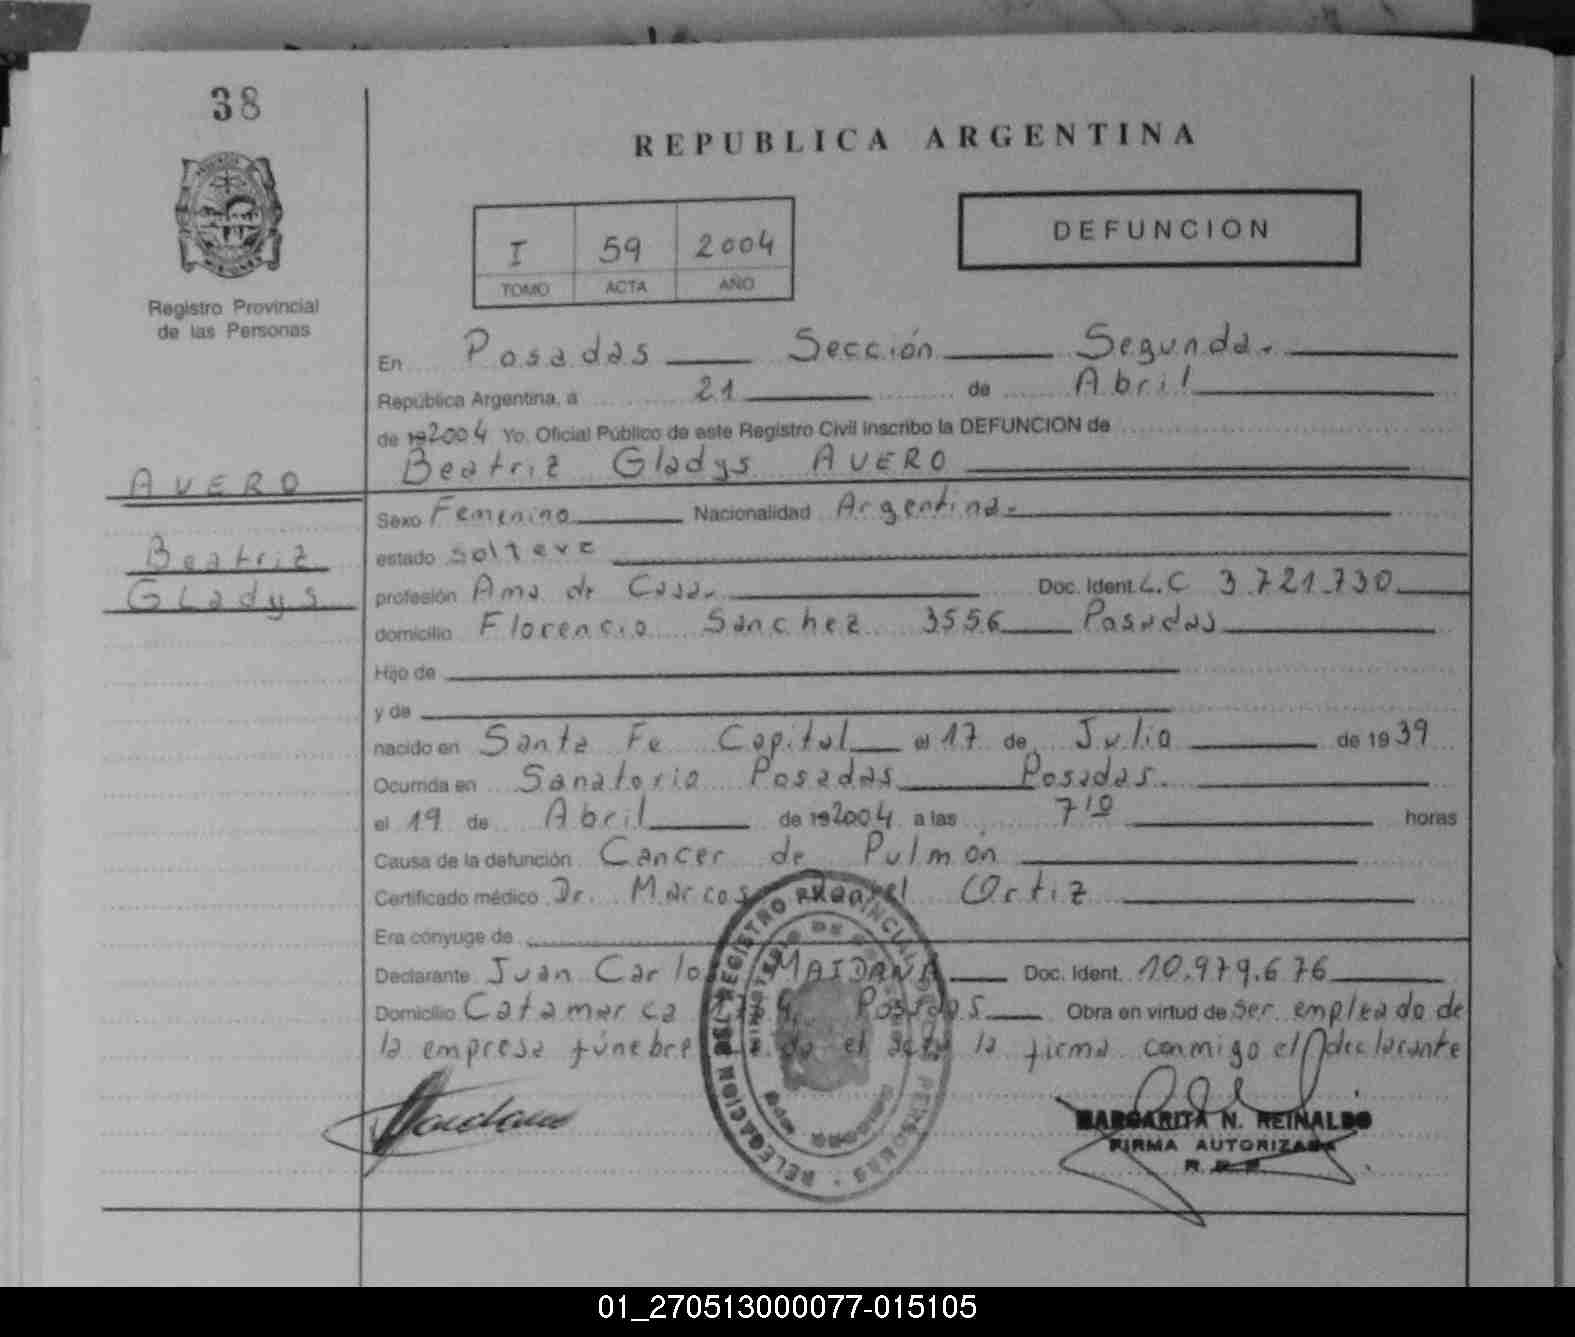 38
REPUBLICA ARGENTINA
I 59 2004
TOMO ACTA AÑO
DEFUNCION
Registro Provincial
de las Personas
En Posadas Sección Segunda.
República Argentina, a 21 de Abril
de 192004 Yo, Oficial Público de este Registro Civil inscribo la DEFUNCION de
Beatriz Gladys AVERO
AVERO
Beatriz
Gladys
Sexo Femenino Nacionalidad Argentina.
estado soltera
profesión Ama de Casa. Doc. Ident. L.C 3.721.730
domicilio Florencio Sanchez 3556 Posadas
Hijo de
y de
nacido en Santa Fe Capital el 17 de Julio de 1939
Ocurrida en Sanatorio Posadas Posadas.
el 19 de Abril de 192004 a las 7 10 horas
Causa de la defunción Cancer de Pulmón
Certificado médico Dr. Marcos Ortiz
Era cónyuge de
Declarante Juan Carlos MAIDANA Doc. Ident. 10.979.676
Domicilio Catamarca Posadas Obra en virtud de Ser empleado de
la empresa fúnebre el acta la firma conmigo el declarante
DELEGACION DEL REGISTRO PROVINCIAL DE PERSONAS
MARGARITA N. REINALDO
FIRMA AUTORIZADA
01_270513000077-015105